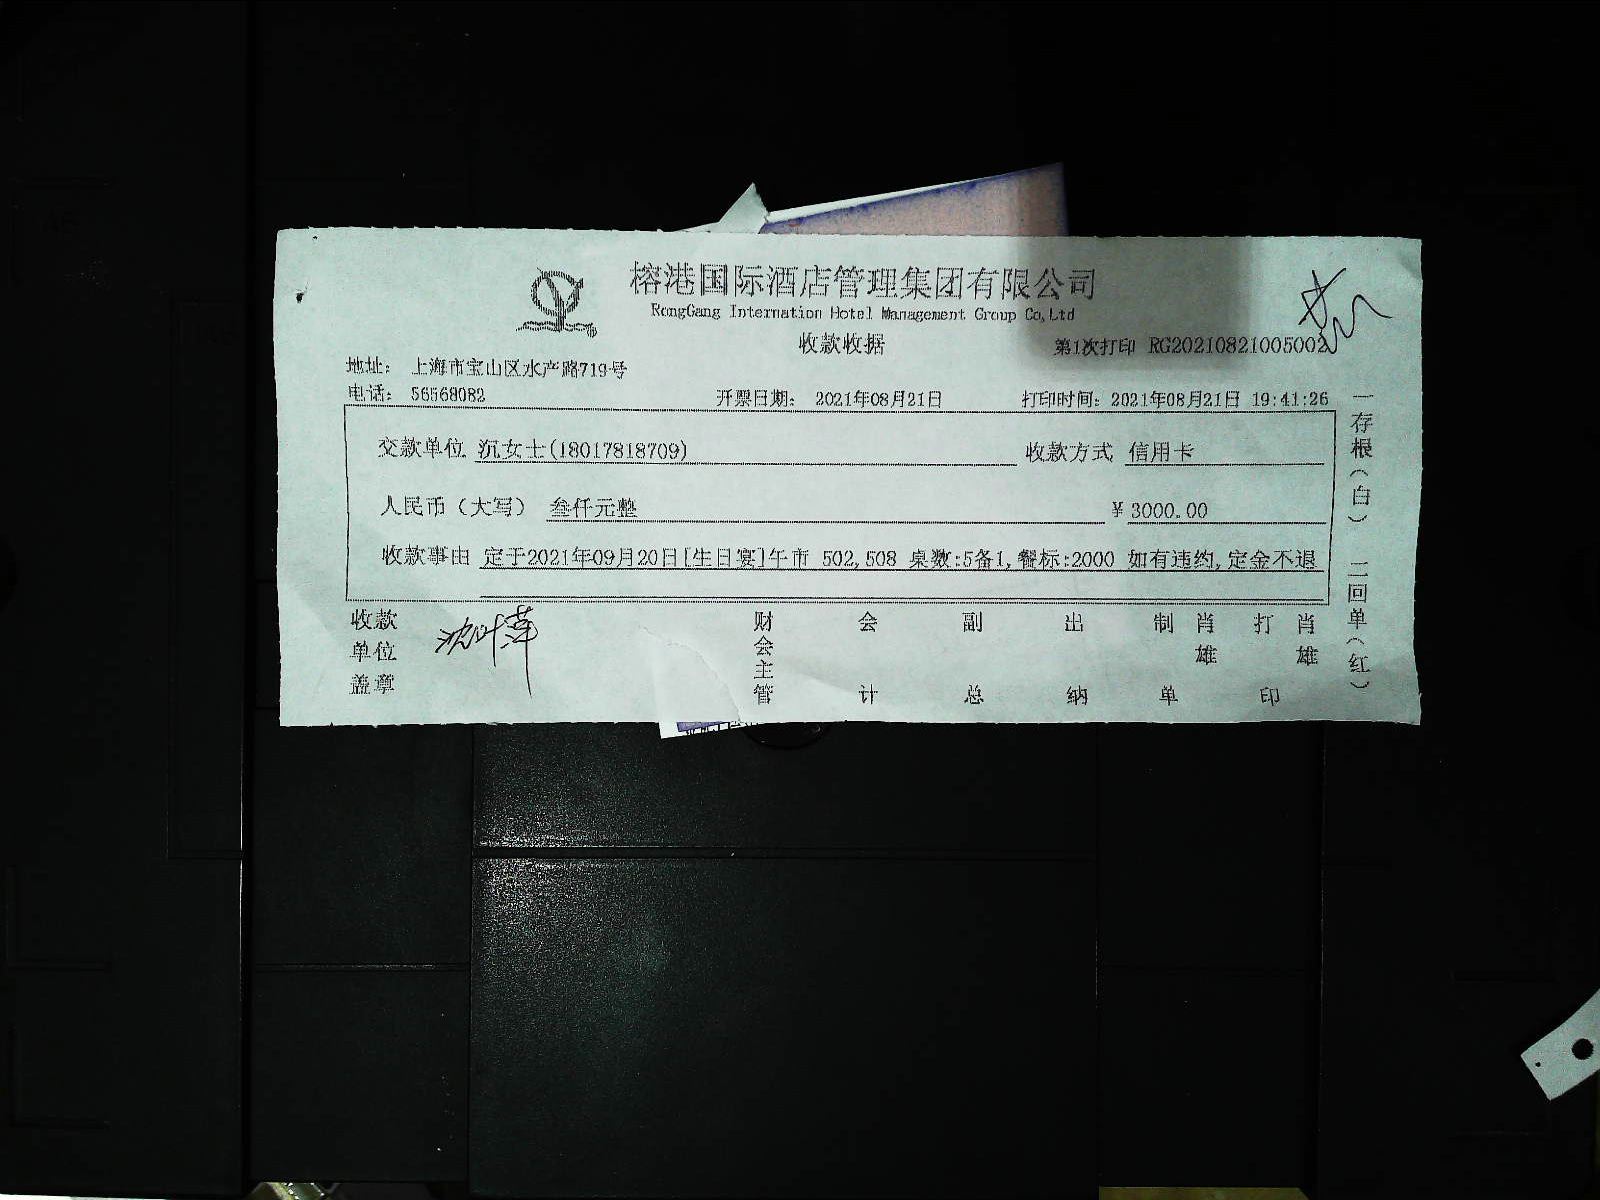 榕港国际酒店管理集团有限公司
RongGang Internation Hotel Management Group Co,Ltd
收款收据
第1次打印 RG20210821005002
地址： 上海市宝山区水产路719号
电话： 56568082 开票日期： 2021年08月21日 打印时间：2021年08月21日 19:41:26
交款单位 沉女士(18017818709) 收款方式 信用卡
人民币（大写） 叁仟元整 ￥3000.00
收款事由 定于2021年09月20日[生日宴]午市 502,508 桌数:5备1,餐标:2000 如有违约,定金不退
收款单位盖章 沈叶萍 财会主管 会计 副总 出纳 制单 肖雄 打印 肖雄
一存根（白） 二回单（红）